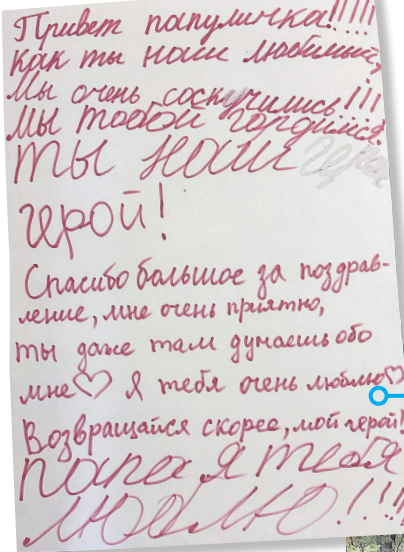 Привет папуличка!!!!!
Как ты наш любимый,
Мы очень соскучились!!!
Мы тобой гордимся!
Ты наш герой
герой!
Спасибо большое за поздрав-
ление, мне очень приятно,
ты даже там думаешь обо
мне♡ Я тебя очень люблю♡
Возвращайся скорее, мой герой!
Папа я тебя
люблю!!!!